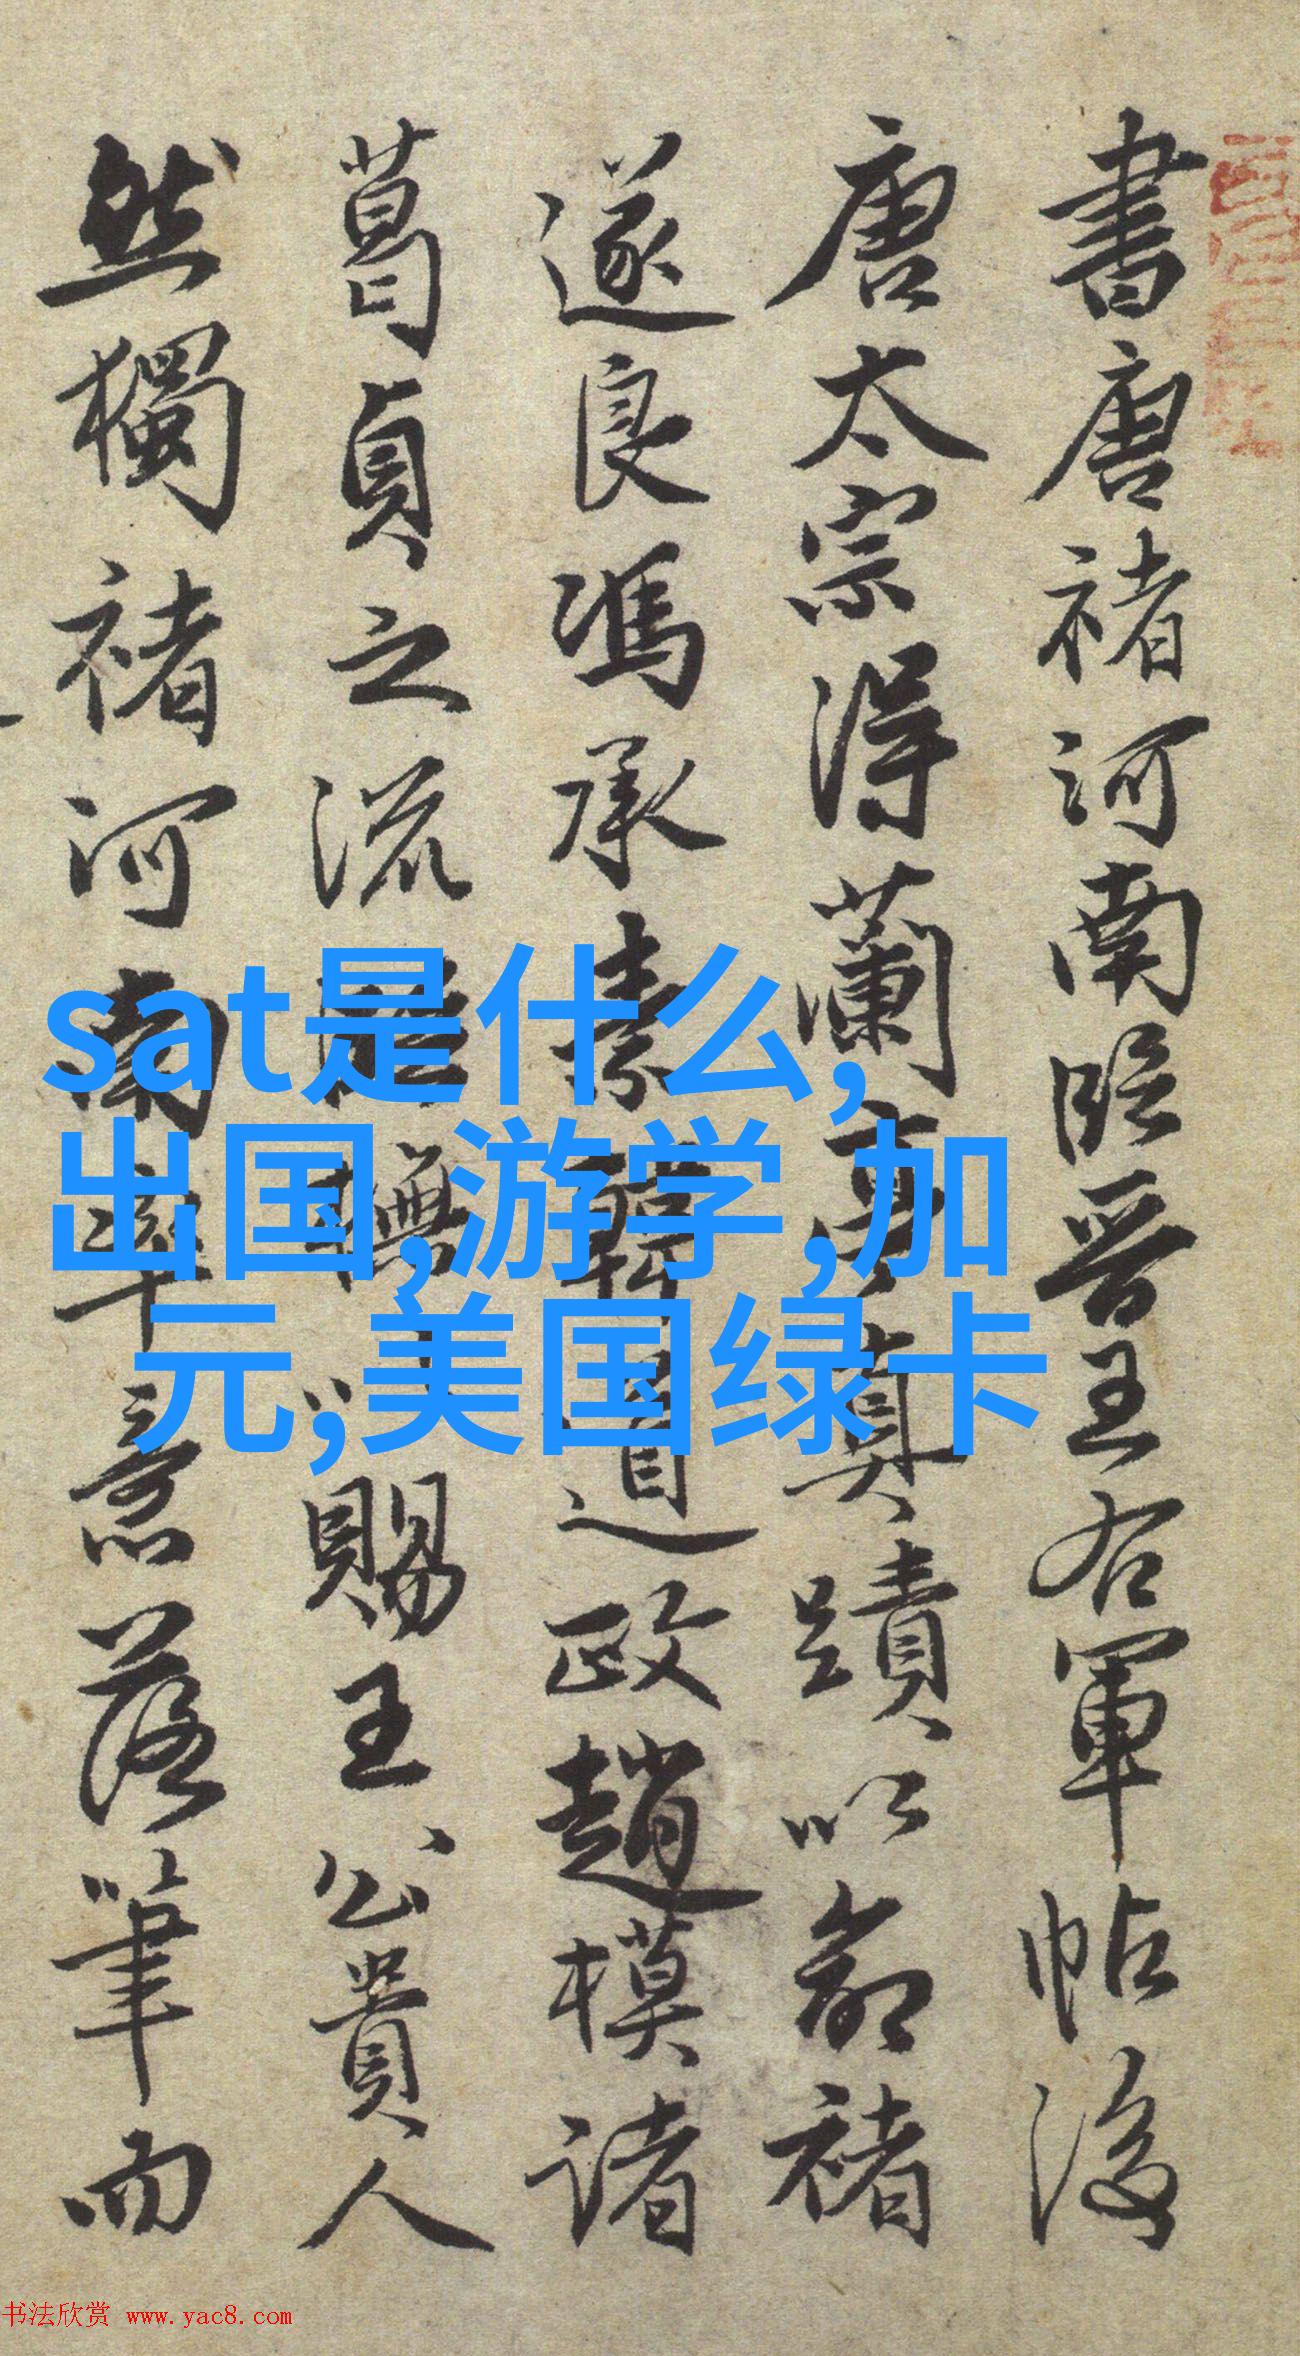 書唐褚河南臨晉王右軍帖後
唐太宗得蘭亭真蹟以命褚
遂良馮承素韓道政趙模諸
葛貞之流橅以賜王公貴人
然獨褚河南率意落筆而
sat是什么,
出国,游学,加
元,美国绿卡
书法欣赏 www.yac8.com